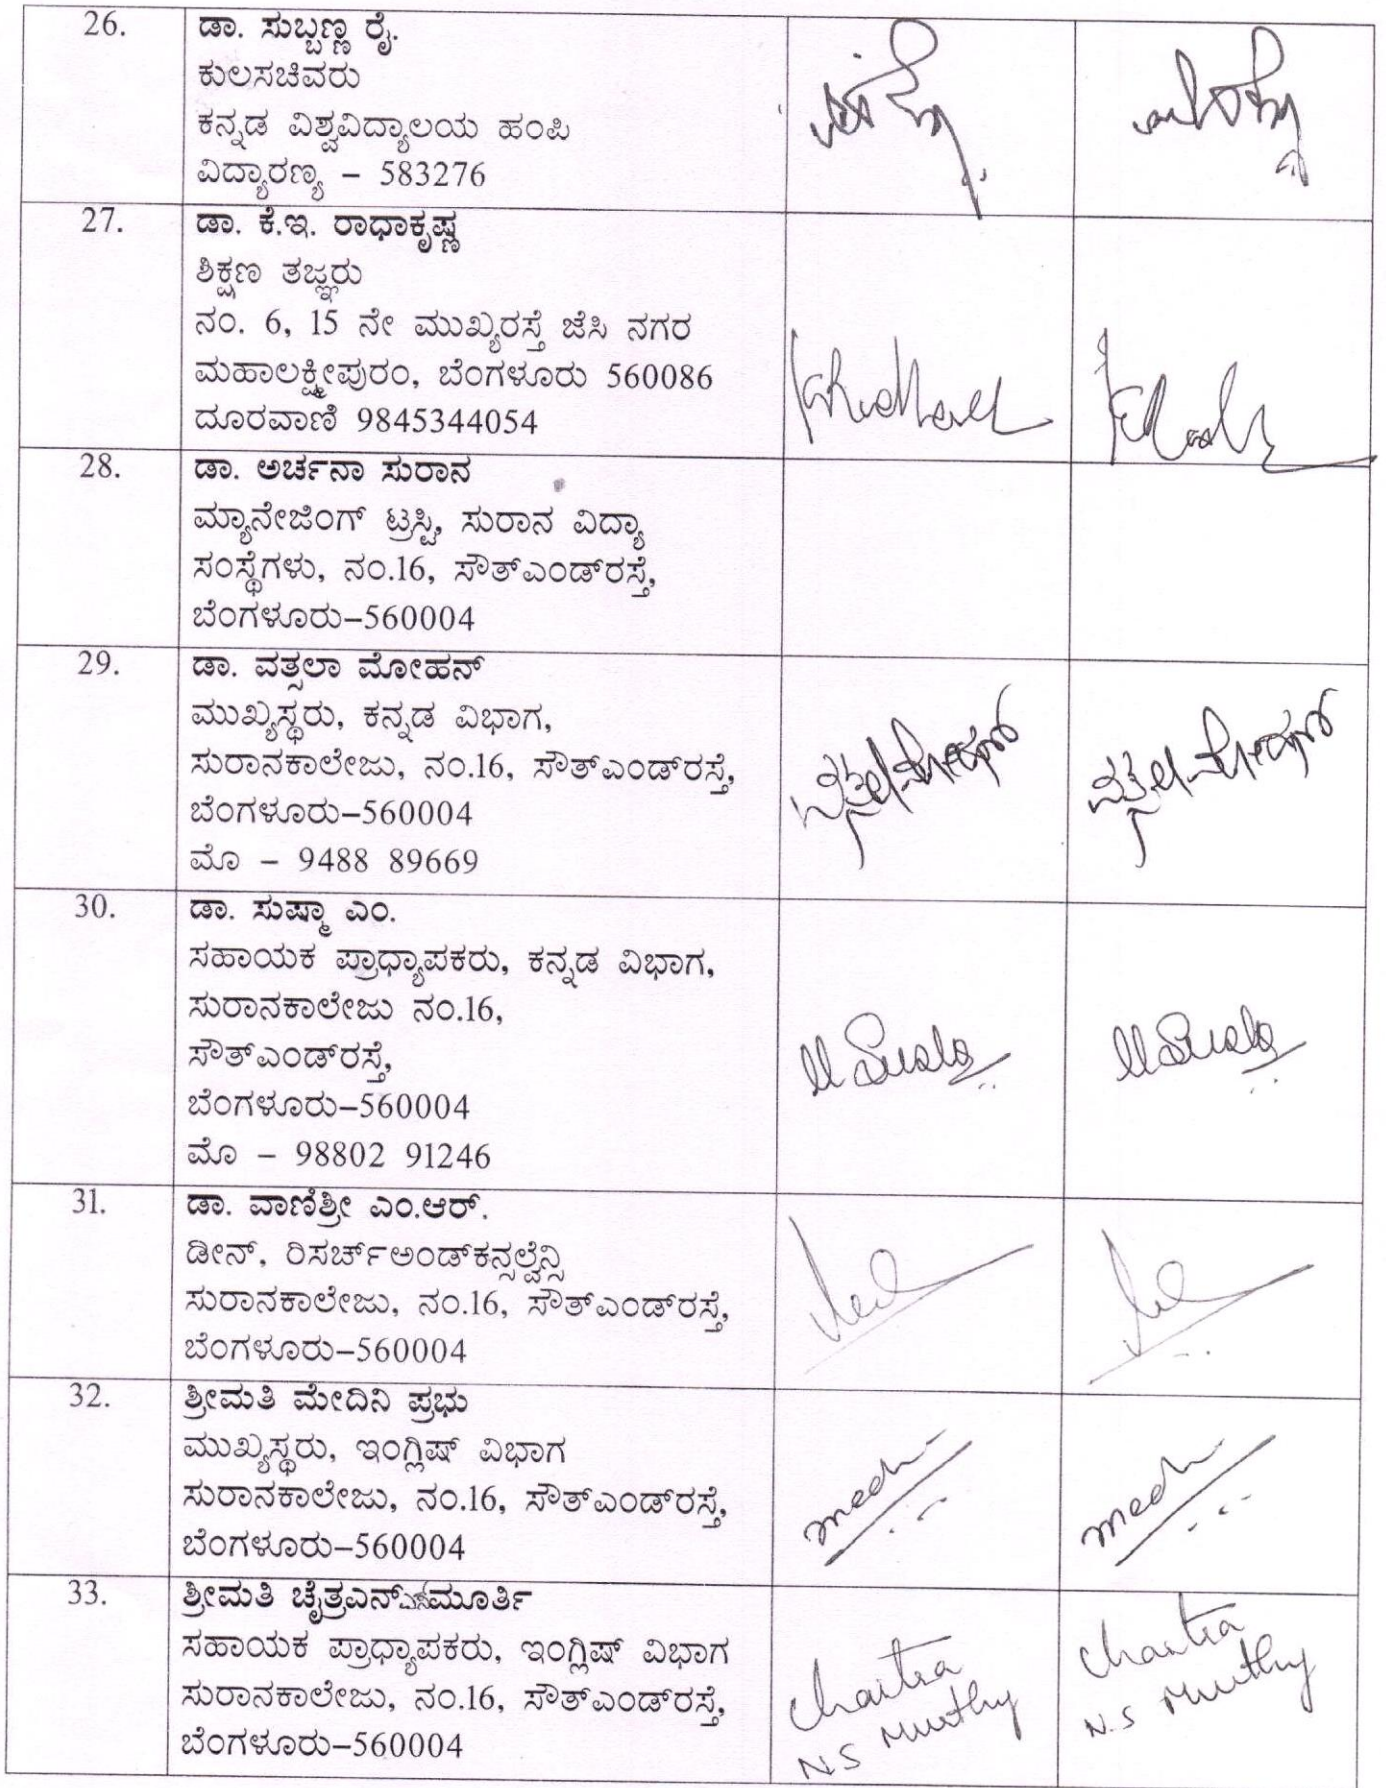 26.
ಡಾ. ಸುಬ್ಬಣ್ಣ ರೈ.
ಕುಲಸಚಿವರು
ಕನ್ನಡ ವಿಶ್ವವಿದ್ಯಾಲಯ ಹಂಪಿ
ವಿದ್ಯಾರಣ್ಯ – 583276
27.
ಡಾ. ಕೆ.ಇ. ರಾಧಾಕೃಷ್ಣ
ಶಿಕ್ಷಣ ತಜ್ಞರು
ನಂ. 6, 15 ನೇ ಮುಖ್ಯರಸ್ತೆ ಜೆಸಿ ನಗರ
ಮಹಾಲಕ್ಷ್ಮೀಪುರಂ, ಬೆಂಗಳೂರು 560086
ದೂರವಾಣಿ 9845344054
28.
ಡಾ. ಅರ್ಚನಾ ಸುರಾನ
ಮ್ಯಾನೇಜಿಂಗ್ ಟ್ರಸ್ಟಿ, ಸುರಾನ ವಿದ್ಯಾ
ಸಂಸ್ಥೆಗಳು, ನಂ.16, ಸೌತ್‌ಎಂಡ್‌ರಸ್ತೆ,
ಬೆಂಗಳೂರು–560004
29.
ಡಾ. ವತ್ಸಲಾ ಮೋಹನ್
ಮುಖ್ಯಸ್ಥರು, ಕನ್ನಡ ವಿಭಾಗ,
ಸುರಾನಕಾಲೇಜು, ನಂ.16, ಸೌತ್‌ಎಂಡ್‌ರಸ್ತೆ,
ಬೆಂಗಳೂರು–560004
ಮೊ – 9488 89669
ವತ್ಸಲಾ ಮೋಹನ್ ವತ್ಸಲಾ ಮೋಹನ್
30.
ಡಾ. ಸುಷ್ಮಾ ಎಂ.
ಸಹಾಯಕ ಪ್ರಾಧ್ಯಾಪಕರು, ಕನ್ನಡ ವಿಭಾಗ,
ಸುರಾನಕಾಲೇಜು ನಂ.16,
ಸೌತ್‌ಎಂಡ್‌ರಸ್ತೆ,
ಬೆಂಗಳೂರು–560004
ಮೊ – 98802 91246
31.
ಡಾ. ವಾಣಿಶ್ರೀ ಎಂ.ಆರ್.
ಡೀನ್, ರಿಸರ್ಚ್‌ಅಂಡ್‌ಕನ್ಸಲ್ಟೆನ್ಸಿ
ಸುರಾನಕಾಲೇಜು, ನಂ.16, ಸೌತ್‌ಎಂಡ್‌ರಸ್ತೆ,
ಬೆಂಗಳೂರು–560004
32.
ಶ್ರೀಮತಿ ಮೇದಿನಿ ಪ್ರಭು
ಮುಖ್ಯಸ್ಥರು, ಇಂಗ್ಲಿಷ್ ವಿಭಾಗ
ಸುರಾನಕಾಲೇಜು, ನಂ.16, ಸೌತ್‌ಎಂಡ್‌ರಸ್ತೆ,
ಬೆಂಗಳೂರು–560004
33.
ಶ್ರೀಮತಿ ಚೈತ್ರಎನ್‌ಎಸ್‌ಮೂರ್ತಿ
ಸಹಾಯಕ ಪ್ರಾಧ್ಯಾಪಕರು, ಇಂಗ್ಲಿಷ್ ವಿಭಾಗ
ಸುರಾನಕಾಲೇಜು, ನಂ.16, ಸೌತ್‌ಎಂಡ್‌ರಸ್ತೆ,
ಬೆಂಗಳೂರು–560004
Chaitra Chaitra
N.S Murthy N.S Murthy